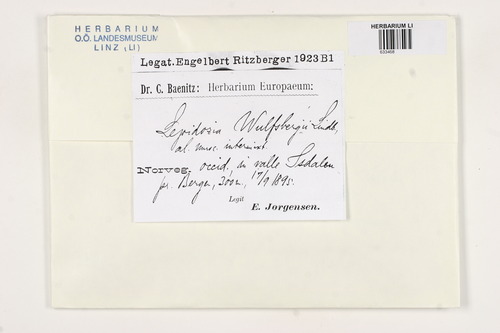 HERBARIUM
O.Ö. LANDESMUSEUM
LINZ (LI)
HERBARIUM LI
Legat. Engelbert Ritzberger 1923 B1
Dr. C. Baenitz: Herbarium Europaeum:
Lepidozia Wulfsbergii Lindb.
al. musc. intermixt.
Norveg. occid. in valle Isdalen
pr. Bergen, 300m, 17/9 1895.
Legit
E. Jørgensen.